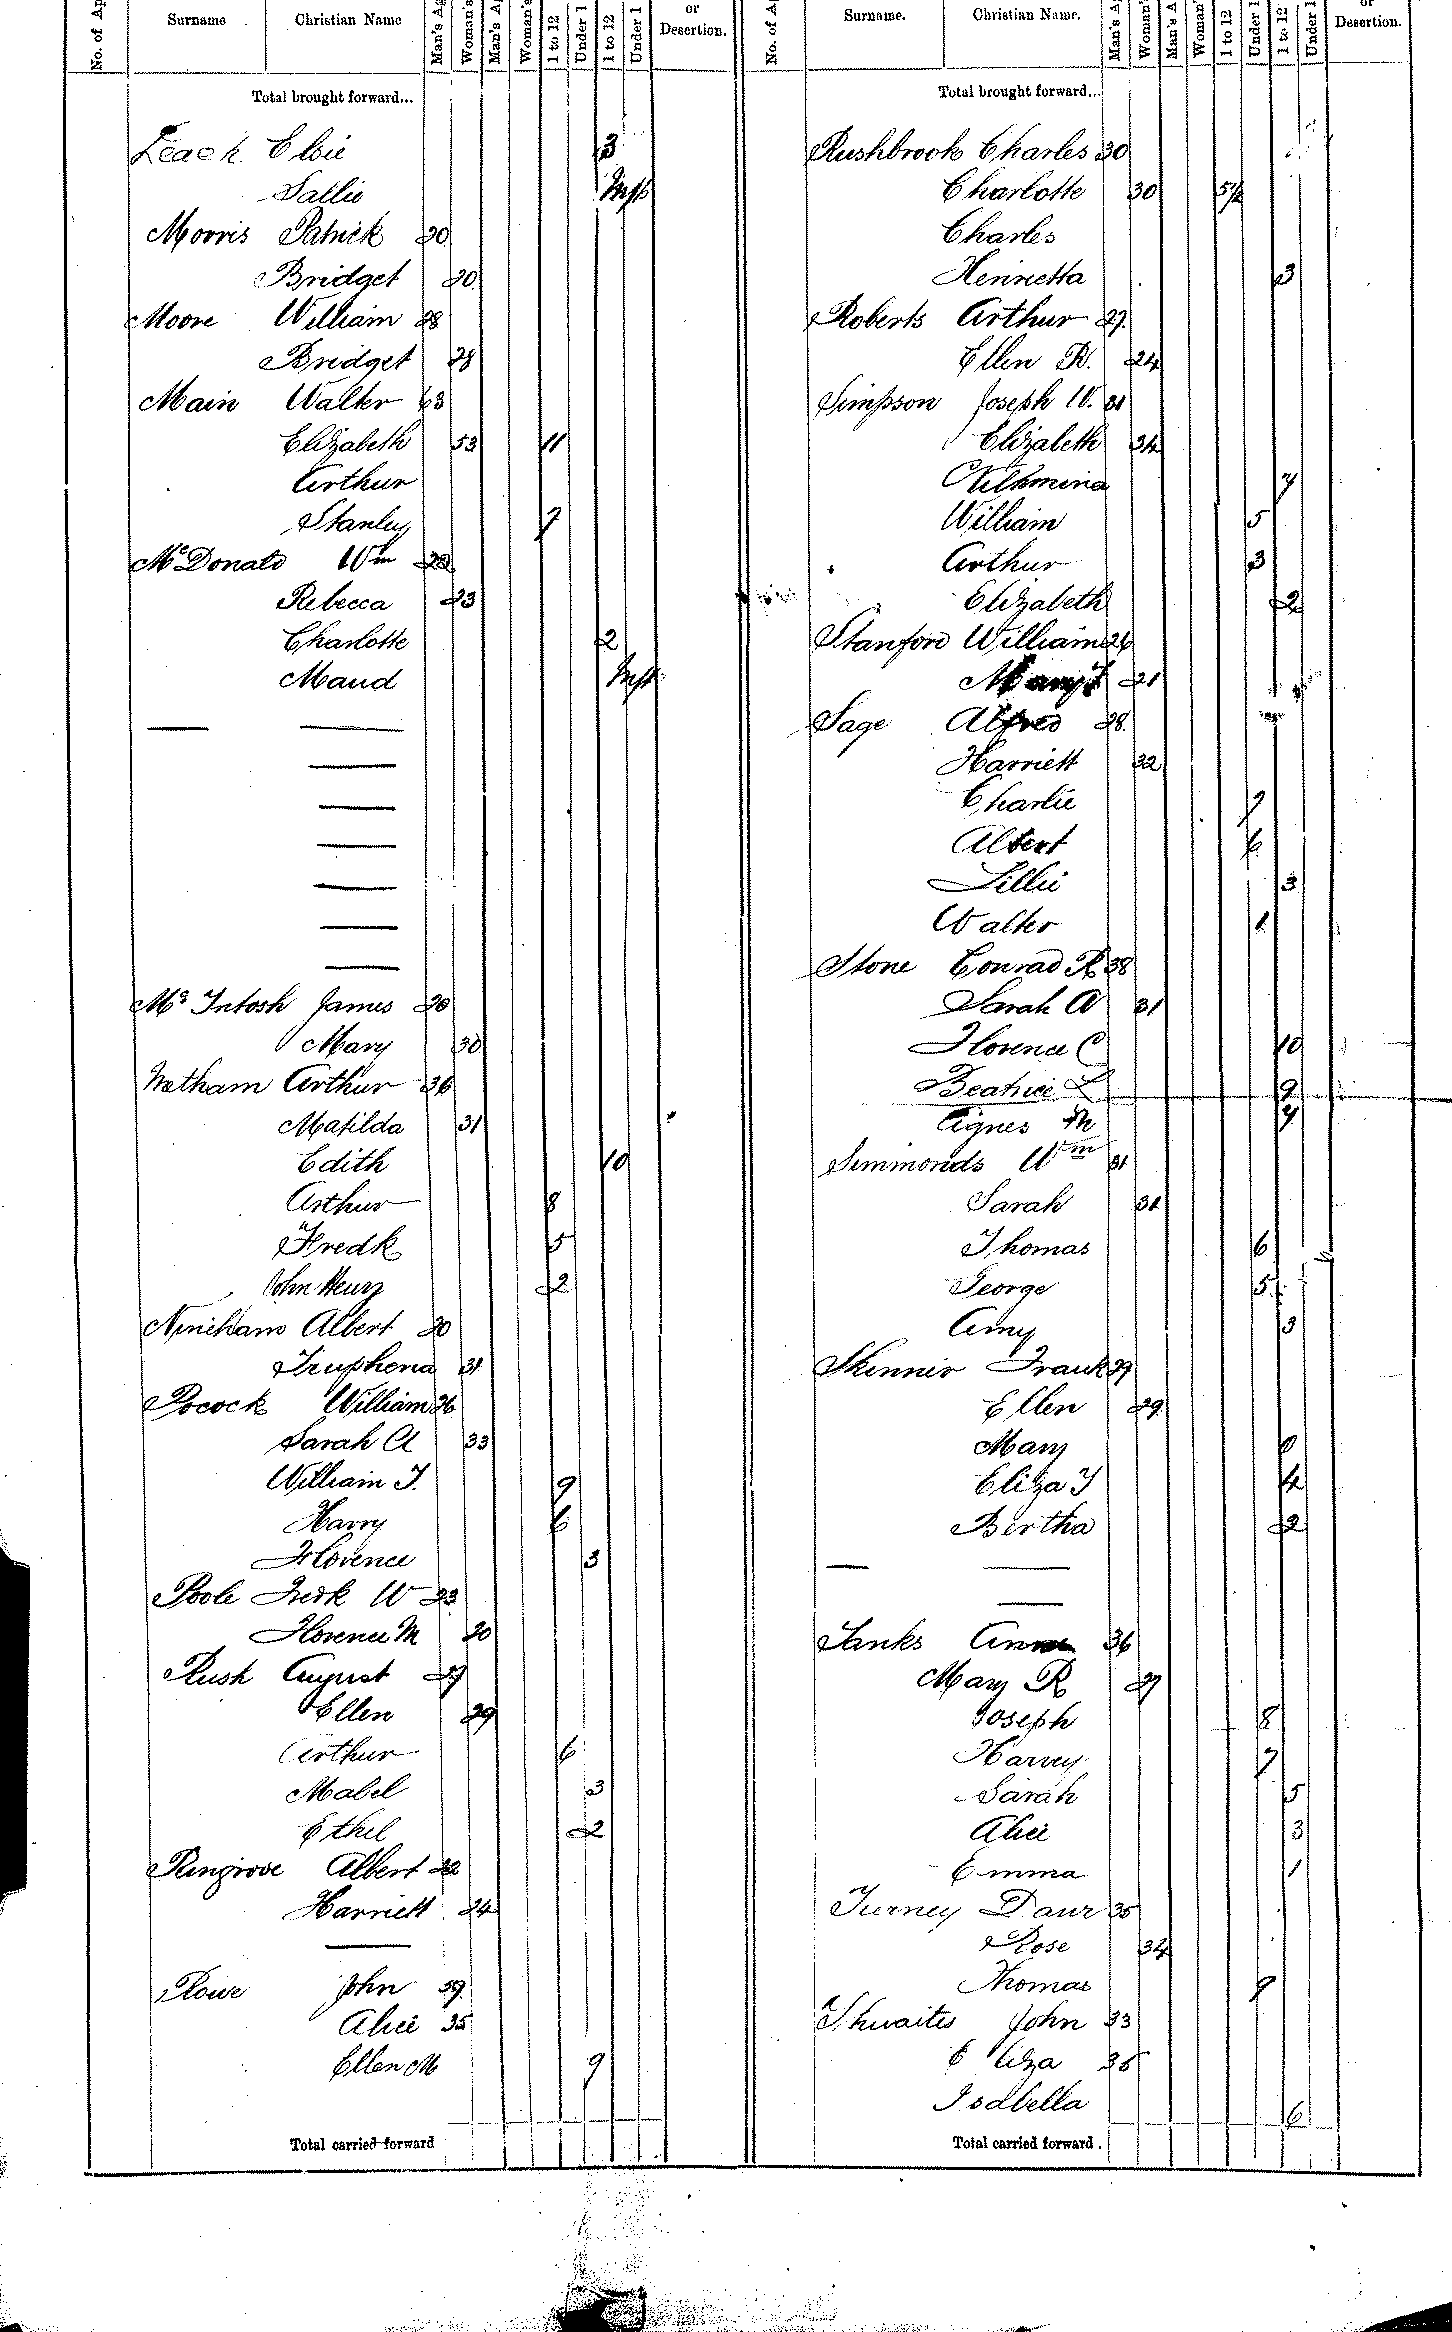 No. of Ap
Surname
Christian Name
Man's Ag
Woman's
Man's Ag
Woman's
1 to 12
Under 1
1 to 12
Under 1
or
Desertion.
Total brought forward...
Leach Elsie 3
Sallie Inft
Morris Patrick 20
Bridget 20
Moore William 28
Bridget 28
Main Walter 63
Elizabeth 53 11
Arthur
Stanley 7
McDonald Wm
Rebecca 23
Charlotte 2
Maud Inft
McIntosh James 20
Mary 30
Netham Arthur 36
Matilda 31
Edith 10
Arthur 8
Fredk 5
John Henry 2
Nineham Albert 20
Truphena 31
Pocock William 26
Sarah A 33
William J. 9
Harry 6
Florence 3
Poole Fredk W 23
Florence M 20
Rush August 27
Ellen 29
Arthur 6
Mabel 3
Ethel 2
Ringrove Albert 22
Harriett 24
Rowe John 39
Alice 35
Ellen M 9
Total carried forward
No. of A
Surname.
Christian Name.
Man's Ag
Woman'
Man's A
Woman'
1 to 12
Under 1
1 to 12
Under 1
or
Desertion.
Total brought forward...
Rushbrook Charles 30
Charlotte 30 5½
Charles
Henrietta 3
Roberts Arthur 27
Ellen R. 24
Simpson Joseph W. 31
Elizabeth 34
Wilhmina 7
William 5
Arthur 3
Elizabeth 2
Stanford William 26
Mary 21
Sage Alfred 28
Harriett 32
Charlie 7
Albert 6
Lillie 3
Walter 1
Stone Conrad R 38
Sarah A 31
Florence C 10
Beatrice L 9
Agnes M 7
Simmonds Wm 31
Sarah 31
Thomas 6
George 5
Amy 3
Skinner Frank 29
Ellen 29
Mary
Eliza J 4
Bertha 2
Tanks 36
Mary R 27
Joseph 8
Harvey 7
Sarah 5
Alice 3
Emma 1
Turney 35
Rose 34
Thomas 9
Thwaites John 33
Eliza 35
Isabella 6
Total carried forward.